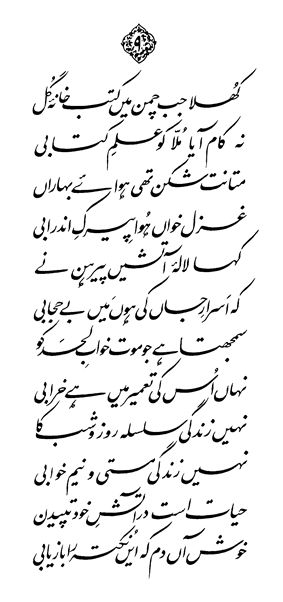 ۹
کھلا جب چمن میں کتب خانۂ گل
نہ کام آیا مُلّا کو علمِ کتابی
متانت شکن تھی ہوائے بہاراں
غزل خواں ہُوا پیرکِ اندرابی
کہا لالۂ آتشیں پیرہن نے
کہ اَسرارِ جاں کی ہوں مَیں بے حجابی
سمجھتا ہے جو موت خوابِ لحَد کو
نہاں اُس کی تعمیر میں ہے خرابی
نہیں زندگی سلسلہ روز و شب کا
نہیں زندگی مستی و نیم خوابی
حیات است در آتشِ خود تپیدن
خوش آں دم کہ ایں نکتہ را بازیابی